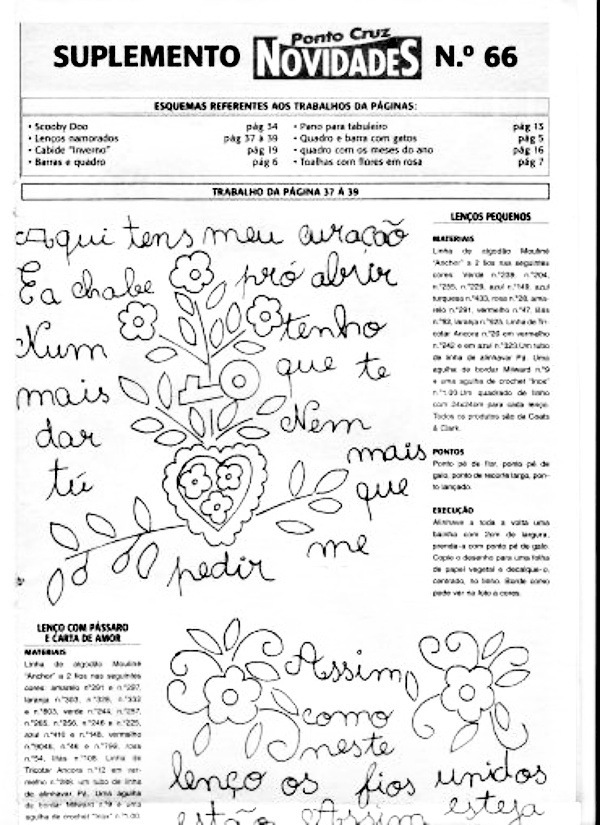 SUPLEMENTO Ponto Cruz NOVIDADES N.º 66
ESQUEMAS REFERENTES AOS TRABALHOS DA PÁGINAS:
• Scooby Doo pág 34
• Lenços namorados pág 37 à 39
• Cabide "Inverno" pág 19
• Barras e quadro pág 6
• Pano para tabuleiro pág 15
• Quadro e barra com gatos pág 5
• quadro com os meses do ano pág 16
• Toalhas com flores em rosa pág 7
TRABALHO DA PÁGINA 37 À 39
Aqui tens meu curação
Ea chabe pró abrir
Num tenho
mais que te
dar Nem
tú mais
que
me
pedir
LENÇOS PEQUENOS
MATERIAIS
Linha de algodão Mouliné
"Anchor" a 2 fios nas seguintes
cores: verde n.º239, n.º204,
n.º255, n.º229, azul n.º149, azul
turquesa n.º433, rosa n.º28, ama-
relo n.º291, vermelho n.º47, lilás
n.º92, laranja n.º925. Linha de Tri-
cotar Ancora n.º20 em vermelho
n.º242 e em azul n.º323. Um tubo
de linha de alinhavar Pá. Uma
agulha de bordar Milward n.º9
e uma agulha de crochet "Inox"
n.º1.00. Um quadrado de linho
com 24x24cm para cada lenço.
Todos os produtos são da Coats
& Clark.
PONTOS
Ponto pé de flor, ponto pé de
galo, ponto de recorte largo, pon-
to lançado.
EXECUÇÃO
Alinhave a toda a volta uma
bainha com 2cm de largura,
prenda-a com ponto pé de galo.
Copie o desenho para uma folha
de papel vegetal e decalque-o,
centrado, no linho. Borde como
pode ver na foto a cores.
LENÇO COM PÁSSARO
E CARTA DE AMOR
MATERIAIS
Linha de algodão Mouliné
"Anchor" a 2 fios nas seguintes
cores: amarelo n.º291 e n.º297,
laranja n.º303, n.º328, n.º332
e n.º803, verde n.º244, n.º257,
n.º265, n.º256, n.º246 e n.º225,
azul n.º410 e n.º148, vermelho
n.º9046, n.º46 e n.º799, rosa
n.º54, lilás n.º108. Linha de
Tricotar Ancora n.º12 em ver-
melho um tubo de linha
de alinhavar Pá. Uma agulha
de bordar Milward n.º9 e uma
agulha de crochet "Inox" n.º1.00
Assim
como
neste
lenço os fios unidos
estão Assim esteja